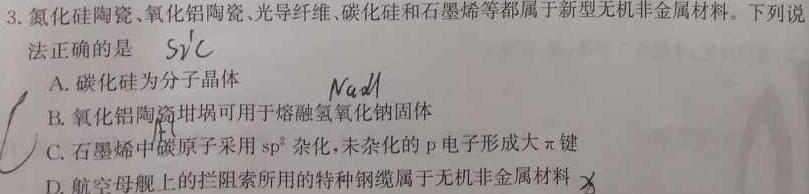 3. 氮化硅陶瓷、氧化铝陶瓷、光导纤维、碳化硅和石墨烯等都属于新型无机非金属材料。下列说
法正确的是 SiC
A. 碳化硅为分子晶体
NaOH
B. 氧化铝陶瓷坩埚可用于熔融氢氧化钠固体
C. 石墨烯中碳原子采用 sp² 杂化,未杂化的 p 电子形成大 π 键
D. 航空母舰上的拦阻索所用的特种钢缆属于无机非金属材料